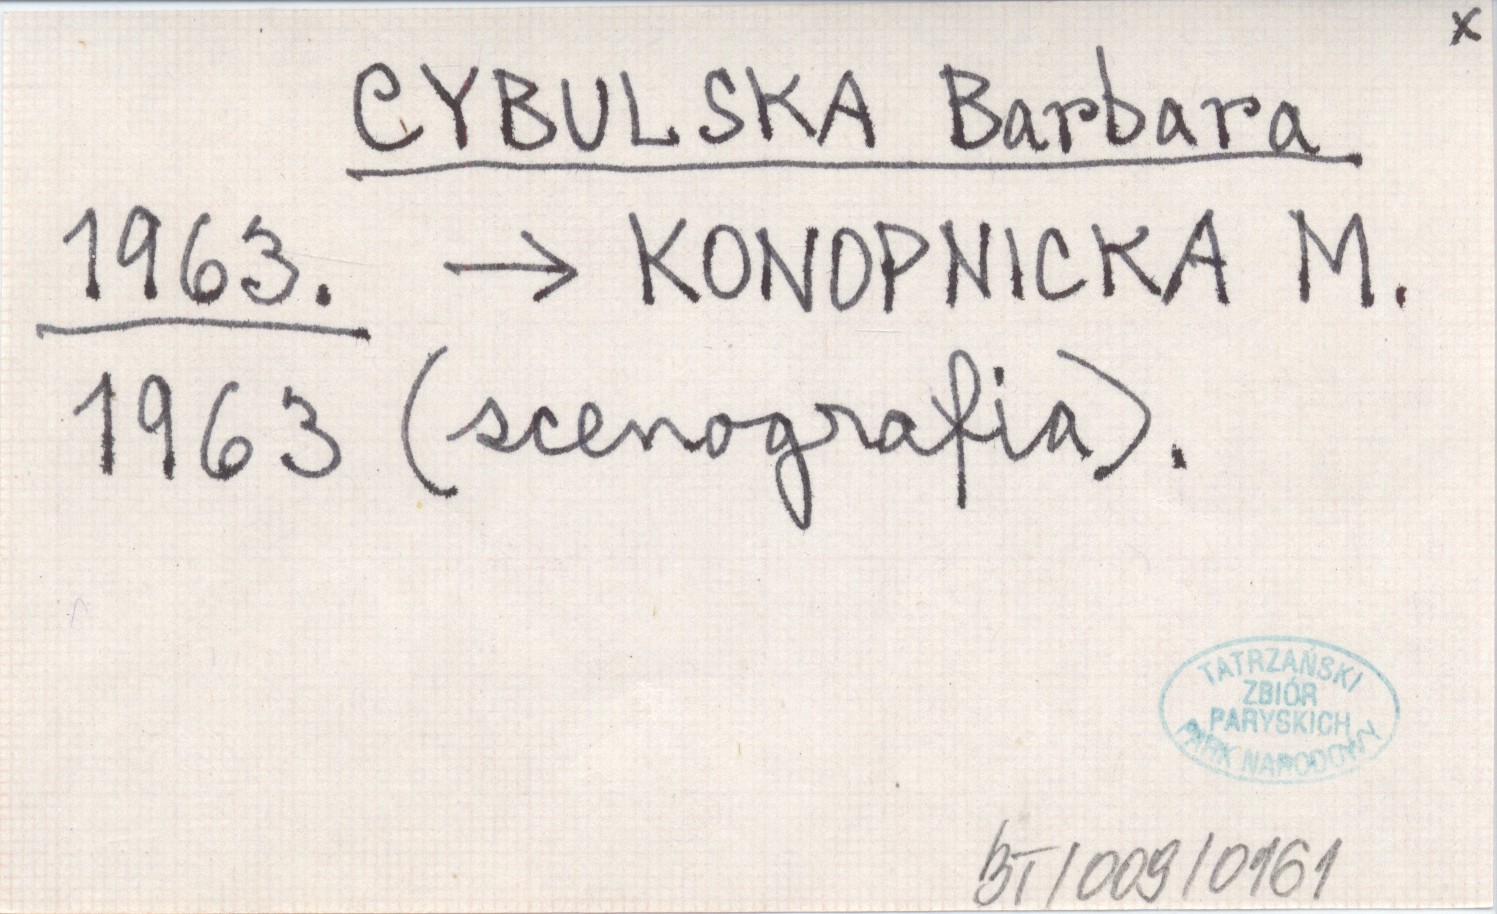 x
CYBULSKA Barbara
1963. → KONOPNICKA M.
1963 (scenografia).
TATRZAŃSKI
ZBIÓR
PARYSKICH
PARK NARODOWY
BT/009/0161